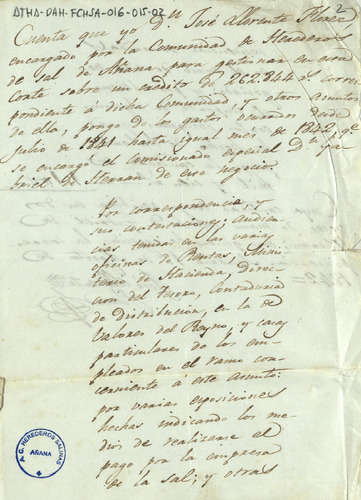 ATHA-DAH-FCHSA-016-015-02
2
Dn José Allorente Florez
Cuenta que yo
encargado por la Comunidad de Herederos
de sal de Añana para gestionar en esta
Corte sobre un credito de 262.844 rs corres
pondiente á dicha Comunidad, y otros asuntos
de ella, pongo de los gastos ocurridos desde
Julio de 1841 hasta igual mes de 1842, qe
se encargó el Comisionado especial Dn Ga-
briel de Herran de ese negocio.
Por correspondencia, y
sus contestaciones, audien-
cias tenidas en las varias
oficinas de Rentas, Minis-
terio de Hacienda, Direc-
cion del Tesoro, Contaduria
de Distribucion, en la de
Valores del Reyno, y casas
particulares de los em-
pleados en el ramo con-
cerniente á este asunto:
por varias exposiciones
hechas indicando los me-
dios de realizarse el
pago por la empresa
de la sal; y otras
A. C. HEREDEROS SALINAS
AÑANA